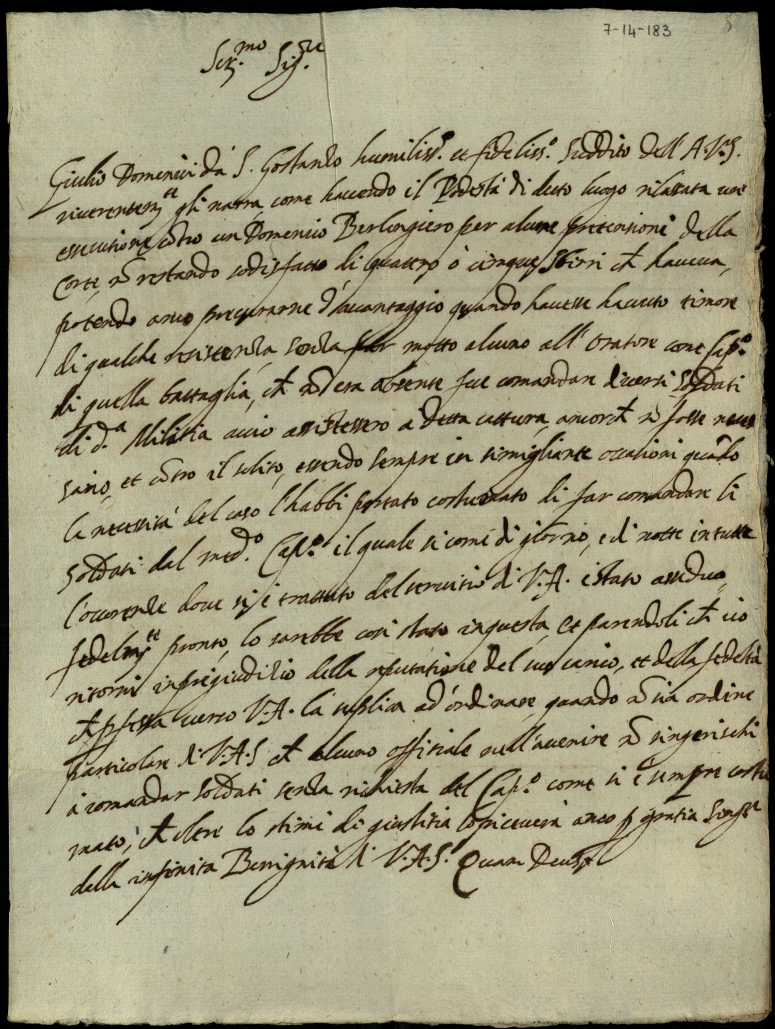 7-14-183
Ser.mo Sig.re
Giulio Domenici da S. Gostanzo humiliss.o et fideliss.o suddito dell'A.V.S.
riverentem.te gli narra, come havendo il Podestà di detto luogo rilassata un'
essecutione contro un Domenico Berlengiero per alcune pretensioni della
Corte, nõ restando sodisfatto di quattro ò cinque sbirri ch' haveva,
potendo anco procurarne d'avantaggio quando havesse havuto timore
di qualche resistenza, senza far motto alcuno all'Oratore come Cap.o
di quella battaglia, ch' nõ era absente fece comandare diversi soldati
di d.a Militia acciò assistessero à detta cattura ancorch' nõ fosse neces
sario, et contro il solito, essendo sempre in simigliante occasioni quãdo
la necessità del caso l'habbi portato costumato di far comandare li
soldati dal med.o Cap.o il quale si come di giorno, e di notte in tutte
l'occorenze dove si è trattato del servitio di V.A. è stato assiduo,
fedelm.te pronto, lo sarebbe così stato in questa, et parendoli ch' ciò
ritorni in pregiudizio della reputatione del suo carico, et della fedeltà
ch' pfessa verso V.A. la suplica ad ordinare, quando nõ sia ordine
particolare di V.A.S. ch' alcuno offitiale nell'avenire nõ s'ingerischi
à comandar soldati senza richiesta del Cap.o come si è sempre costu
mato, ch' oltre lo stimi di giustitia lo riceverà anco p gratia
della infinita Benignità di V.A.S. Quam Deus